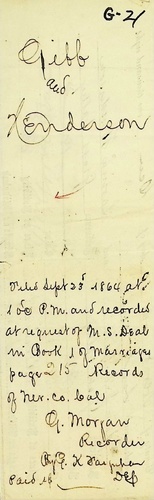 G-21
Gibb
and
Henderson
Filed Sept 23d 1864 at
P.M. and recorded
at request of M. S. Deal
in Book 1 of Marriages
page 215 Records
of Ner. Co. Cal
G. Morgan
Recorder
By
Paid